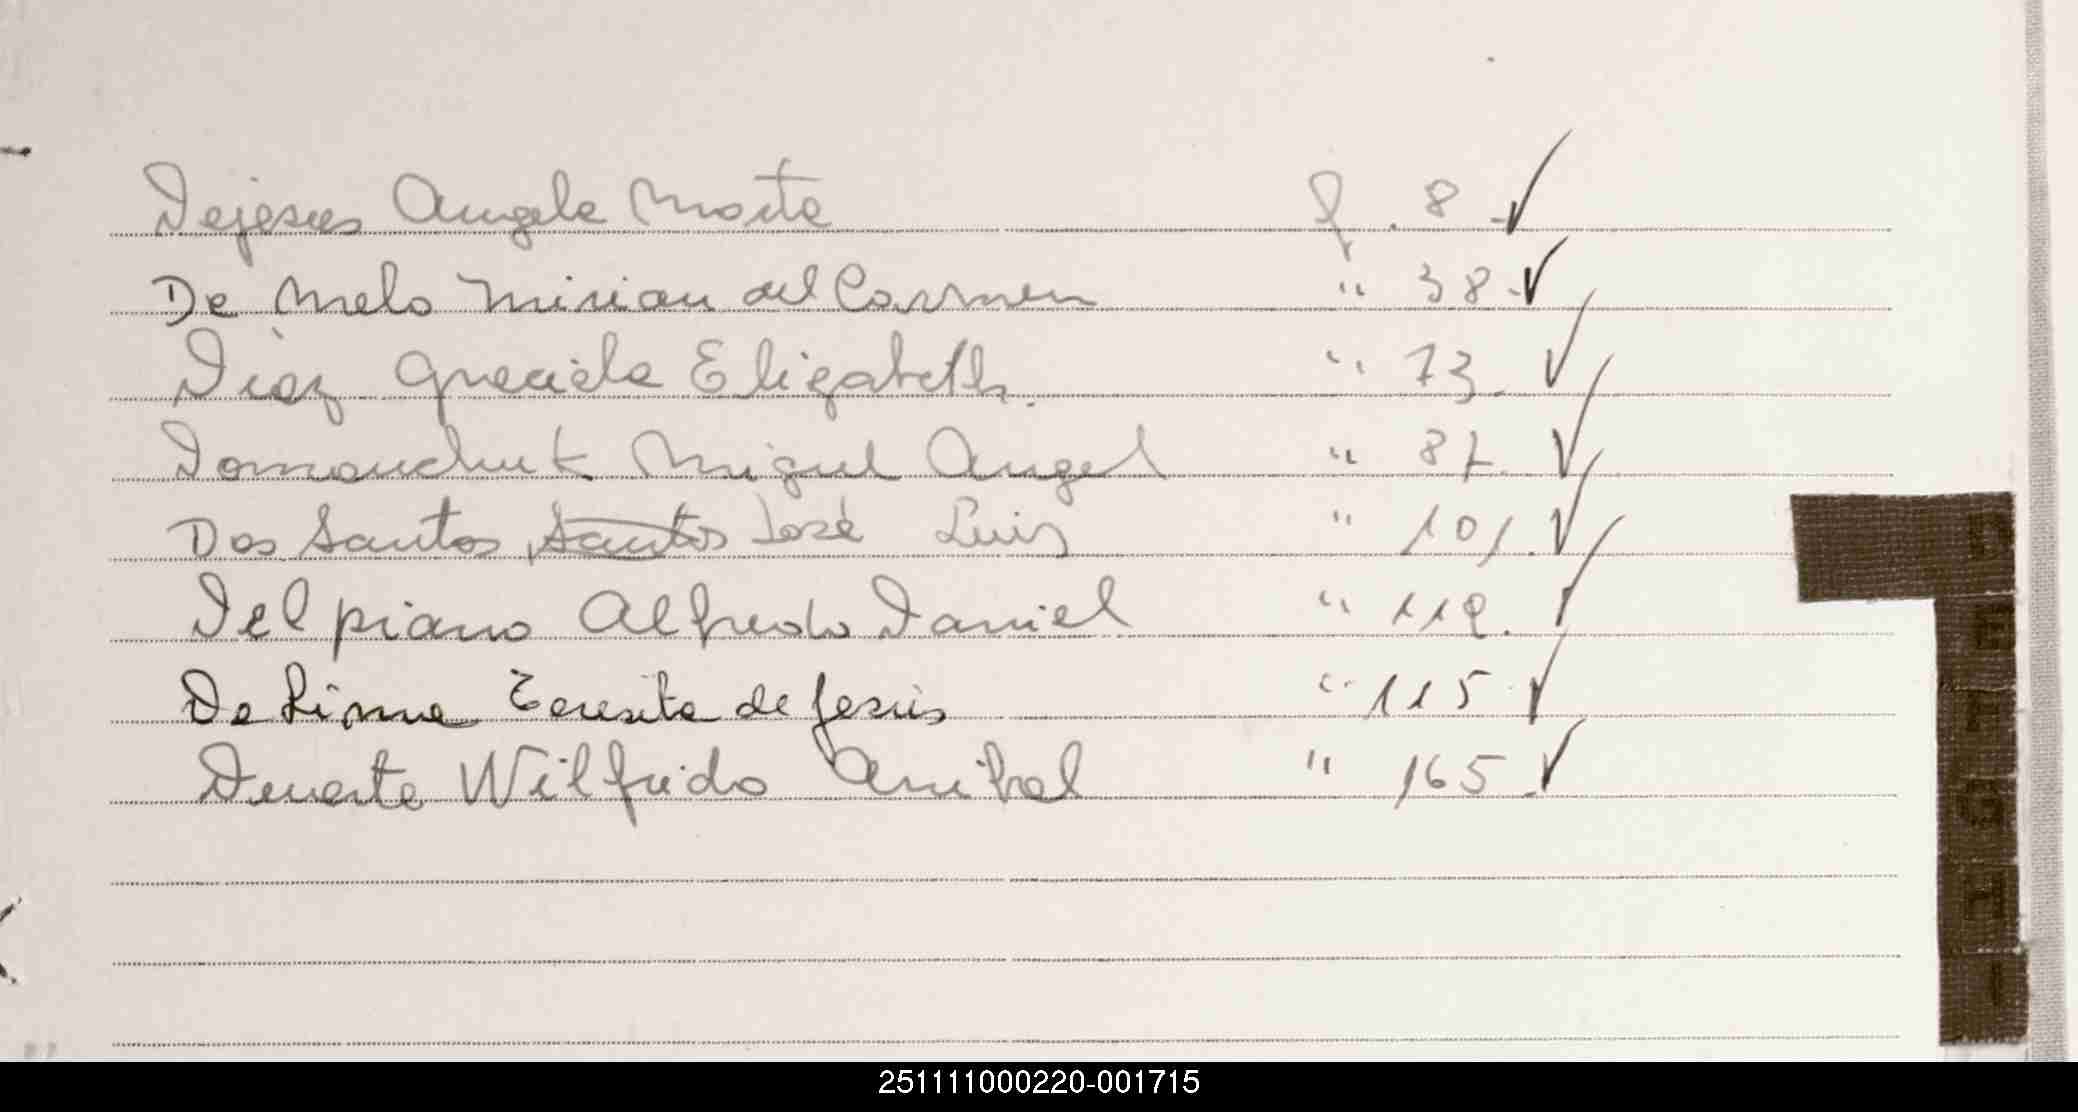 Dejesus Angela Marta f. 8 - ✓
De Melo Mirian del Carmen " 38 - ✓
Diaz Graciela Elizabeth. " 73. ✓
Domanchuk Miguel Angel " 87. ✓
Dos Santos, José Luis " 101. ✓
Del piano Alfredo Daniel " 112. ✓
De Lima Teresita de Jesús " 115. ✓
Duarte Wilfrido Anibal " 165. ✓
D
E
F
G
H
I
251111000220-001715